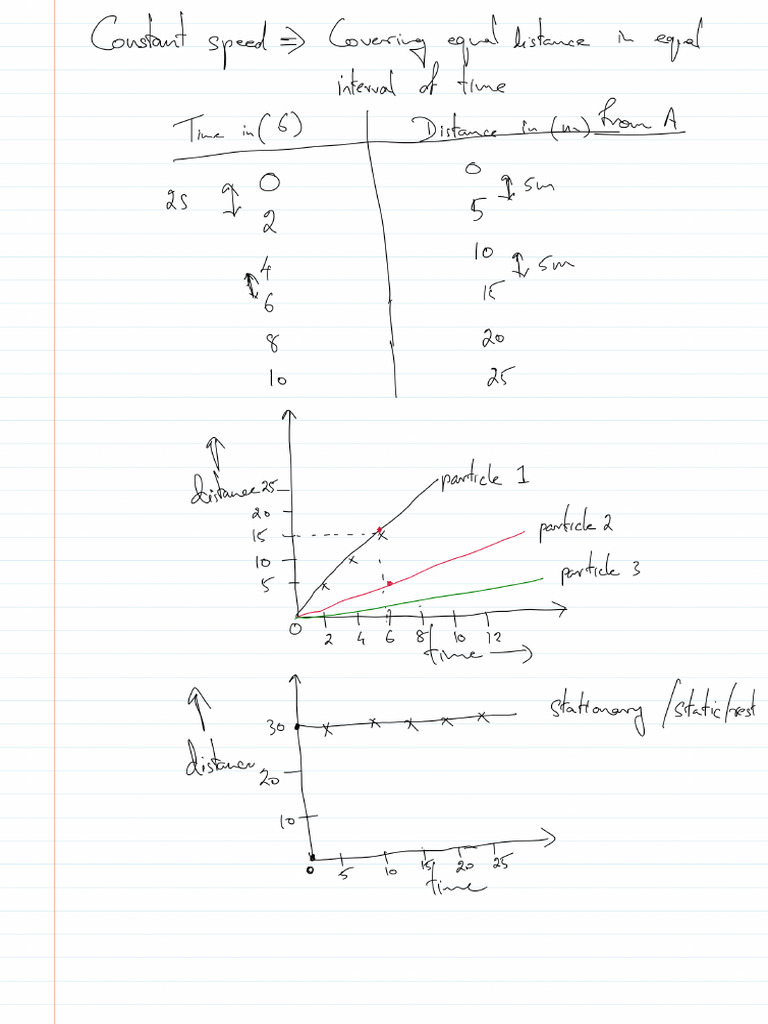 Constant speed ⇒ Covering equal distance in equal
interval of time
Time in (s) Distance in (m) from A
0 0
2s 5m
2 5
4 10
5m
6 15
8 20
10 25
particle 1
distance 25
20
particle 2
15
10
particle 3
5
0 2 4 6 8 10 12
time
stationary /static/rest
30
distance
20
10
0 5 10 15 20 25
time